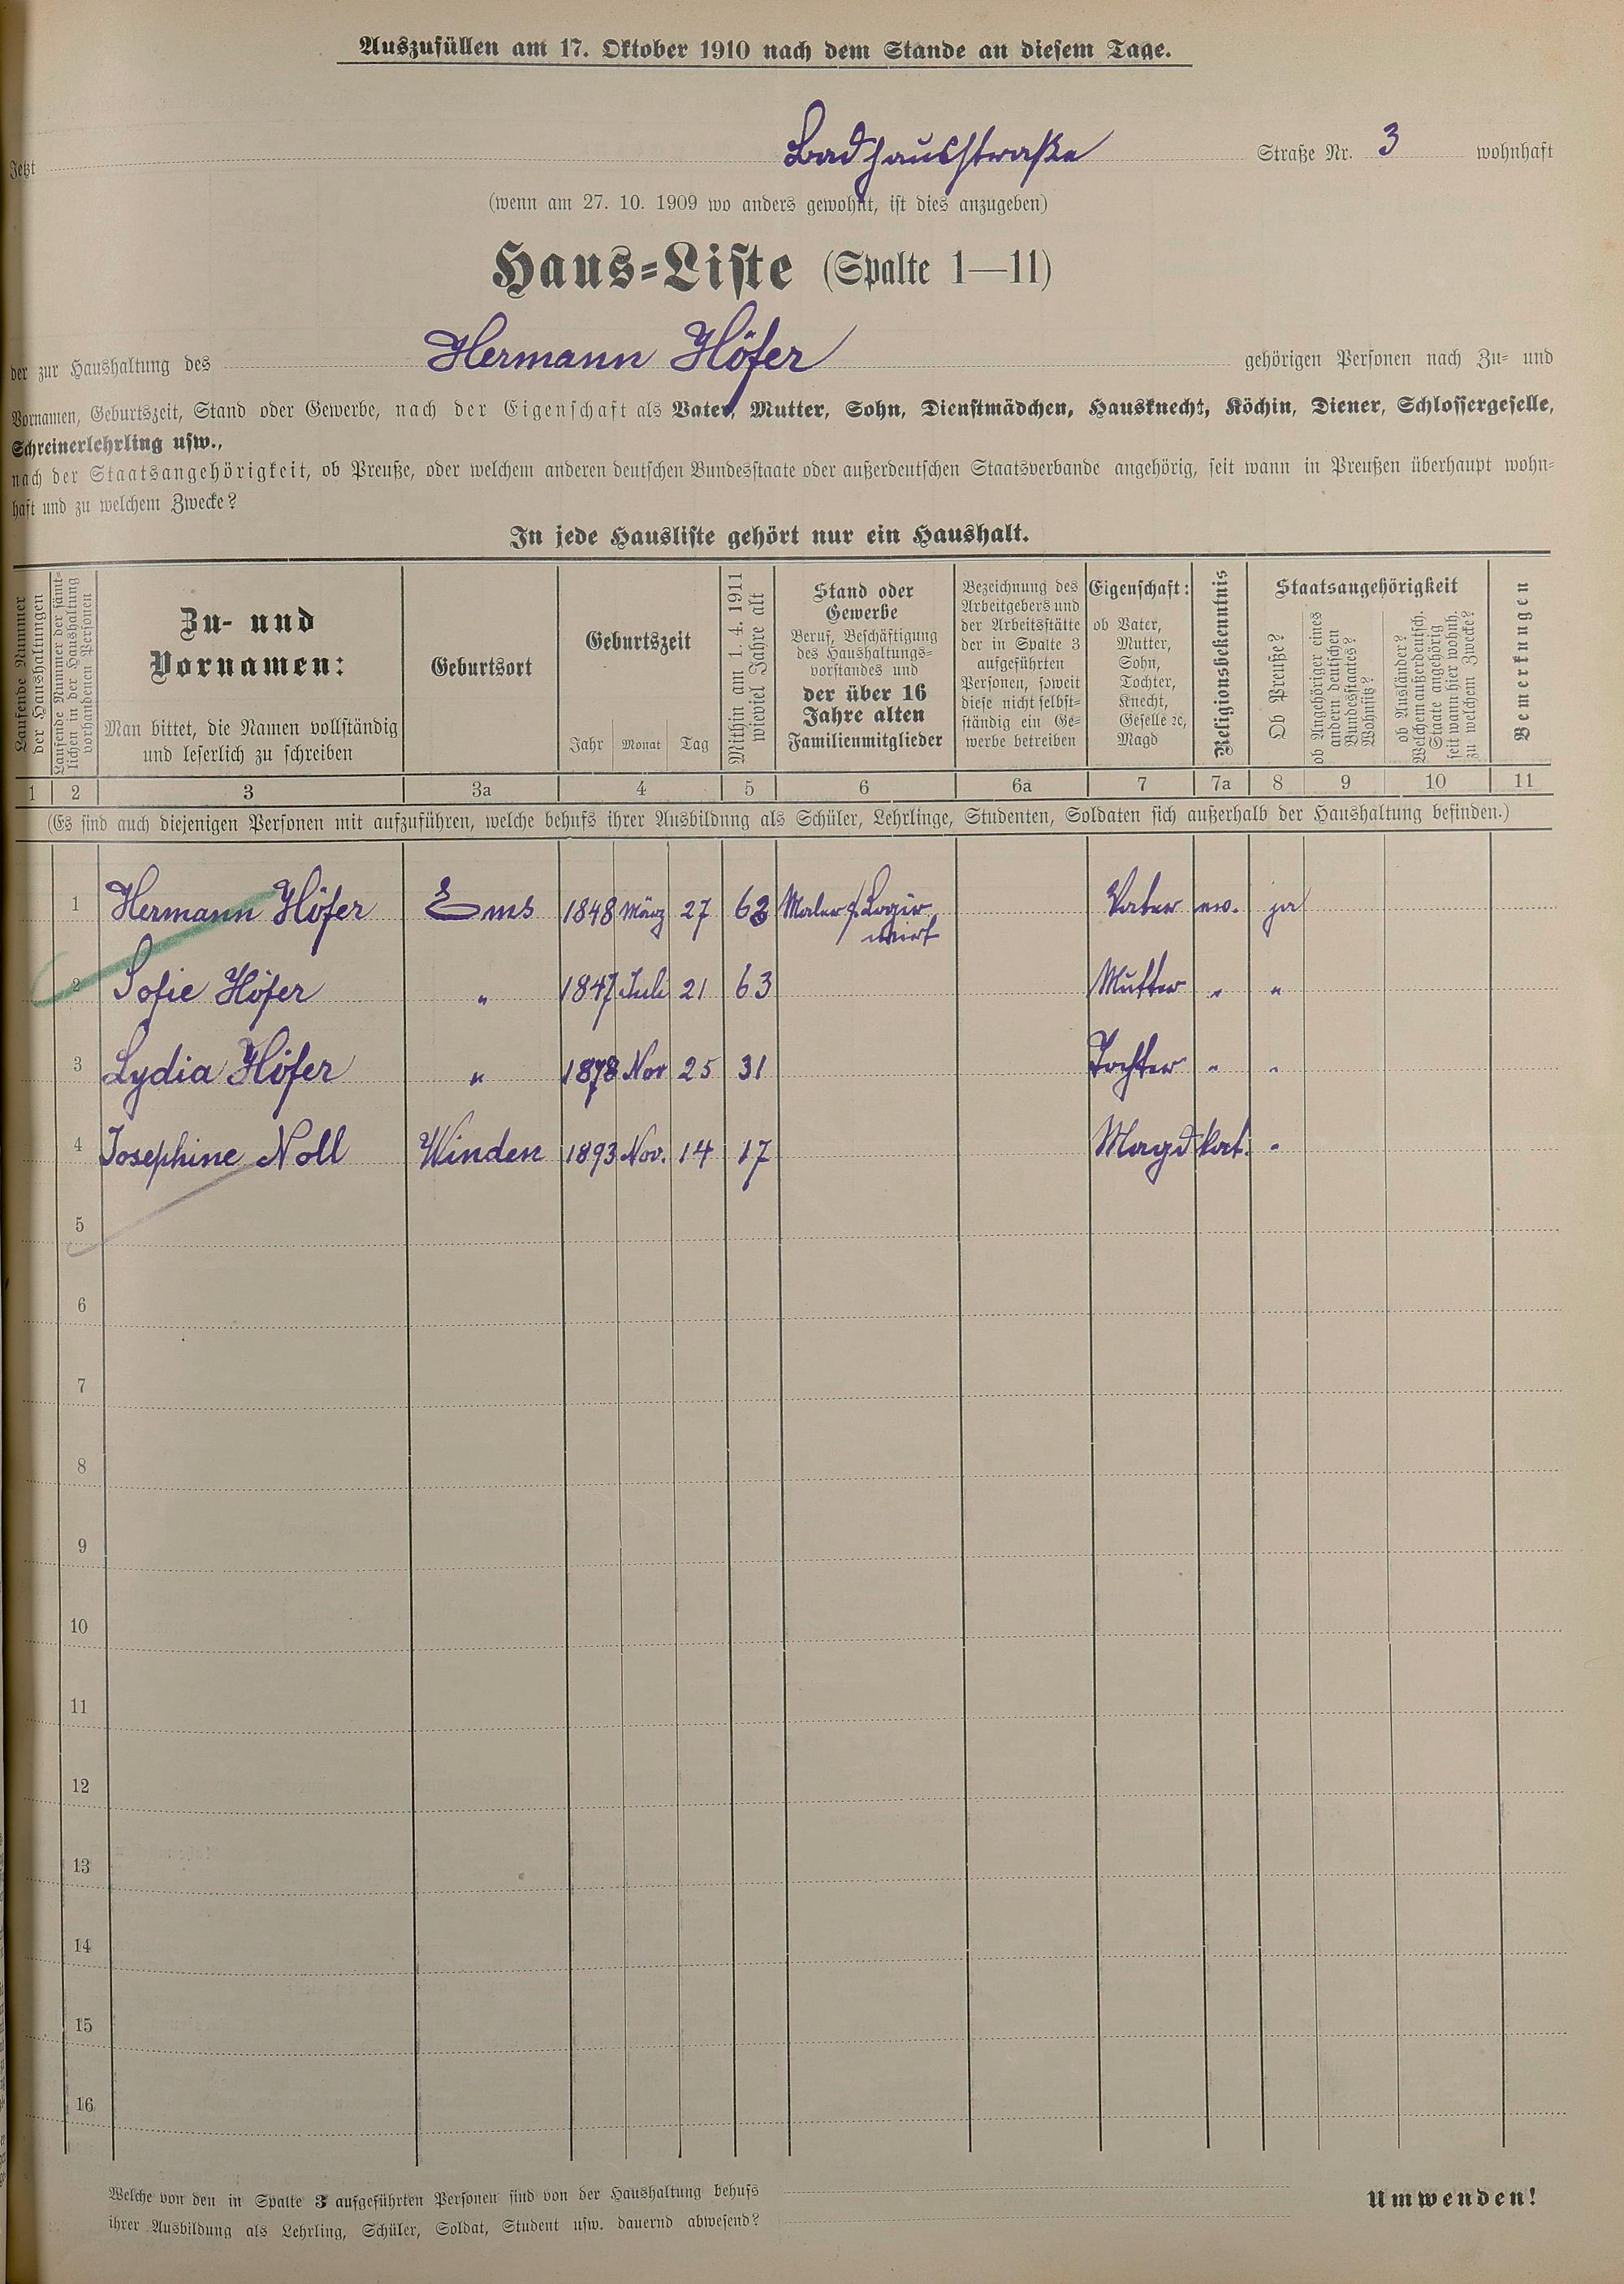 Auszufüllen am 17. Oktober 1910 nach dem Stande an diesem Tage.
Jetzt Badhausstraße Straße Nr. 3 wohnhaft
(wenn am 27. 10. 1909 wo anders gewohnt, ist dies anzugeben)
Haus-Liste (Spalte 1—11)
der zur Haushaltung des Hermann Höfer gehörigen Personen nach Zu- und
Vornamen, Geburtszeit, Stand oder Gewerbe, nach der Eigenschaft als Vater, Mutter, Sohn, Dienstmädchen, Hausknecht, Köchin, Diener, Schlossergeselle,
Schreinerlehrling usw.,
nach der Staatsangehörigkeit, ob Preuße, oder welchem anderen deutschen Bundesstaate oder außerdeutschen Staatsverbande angehörig, seit wann in Preußen überhaupt wohn-
haft und zu welchem Zwecke?
In jede Hausliste gehört nur ein Haushalt.
Laufende Nummer
der Haushaltungen
Laufende Nummer der sämt-
lichen in der Haushaltung
vorhandenen Personen
Zu- und
Vornamen:
Man bittet, die Namen vollständig
und leserlich zu schreiben
Geburtsort
Geburtszeit
Jahr Monat Tag
Mithin am 1. 4. 1911
wieviel Jahre alt
Stand oder
Gewerbe
Beruf, Beschäftigung
des Haushaltungs-
vorstandes und
der über 16
Jahre alten
Familienmitglieder
Bezeichnung des
Arbeitgebers und
der Arbeitsstätte
der in Spalte 3
aufgeführten
Personen, soweit
diese nicht selbst-
ständig ein Ge-
werbe betreiben
Eigenschaft:
ob Vater,
Mutter,
Sohn,
Tochter,
Knecht,
Geselle ꝛc,
Magd
Religionsbekenntnis
Staatsangehörigkeit
Ob Preuße?
ob Angehöriger eines
andern deutschen
Bundesstaates?
Wohnsitz?
ob Ausländer?
Welchem außerdeutsch.
Staate angehörig
seit wann hier wohnh.
zu welchem Zwecke?
Bemerkungen
1 2 3 3a 4 5 6 6a 7 7a 8 9 10 11
(Es sind auch diejenigen Personen mit aufzuführen, welche behufs ihrer Ausbildung als Schüler, Lehrlinge, Studenten, Soldaten sich außerhalb der Haushaltung befinden.)
1 Hermann Höfer Ems 1848 März 27 63 Maler Logir Vater ev. ja
wirt
2 Sofie Höfer " 1847 Juli 21 63 Mutter " "
3 Lydia Höfer " 1878 Nov 25 31 Tochter " "
4 Josephine Noll Winden 1893 Nov. 14 17 Magd kat. "
5
6
7
8
9
10
11
12
13
14
15
16
Welche von den in Spalte 3 aufgeführten Personen sind von der Haushaltung behufs
ihrer Ausbildung als Lehrling, Schüler, Soldat, Student usw. dauernd abwesend?
Umwenden!